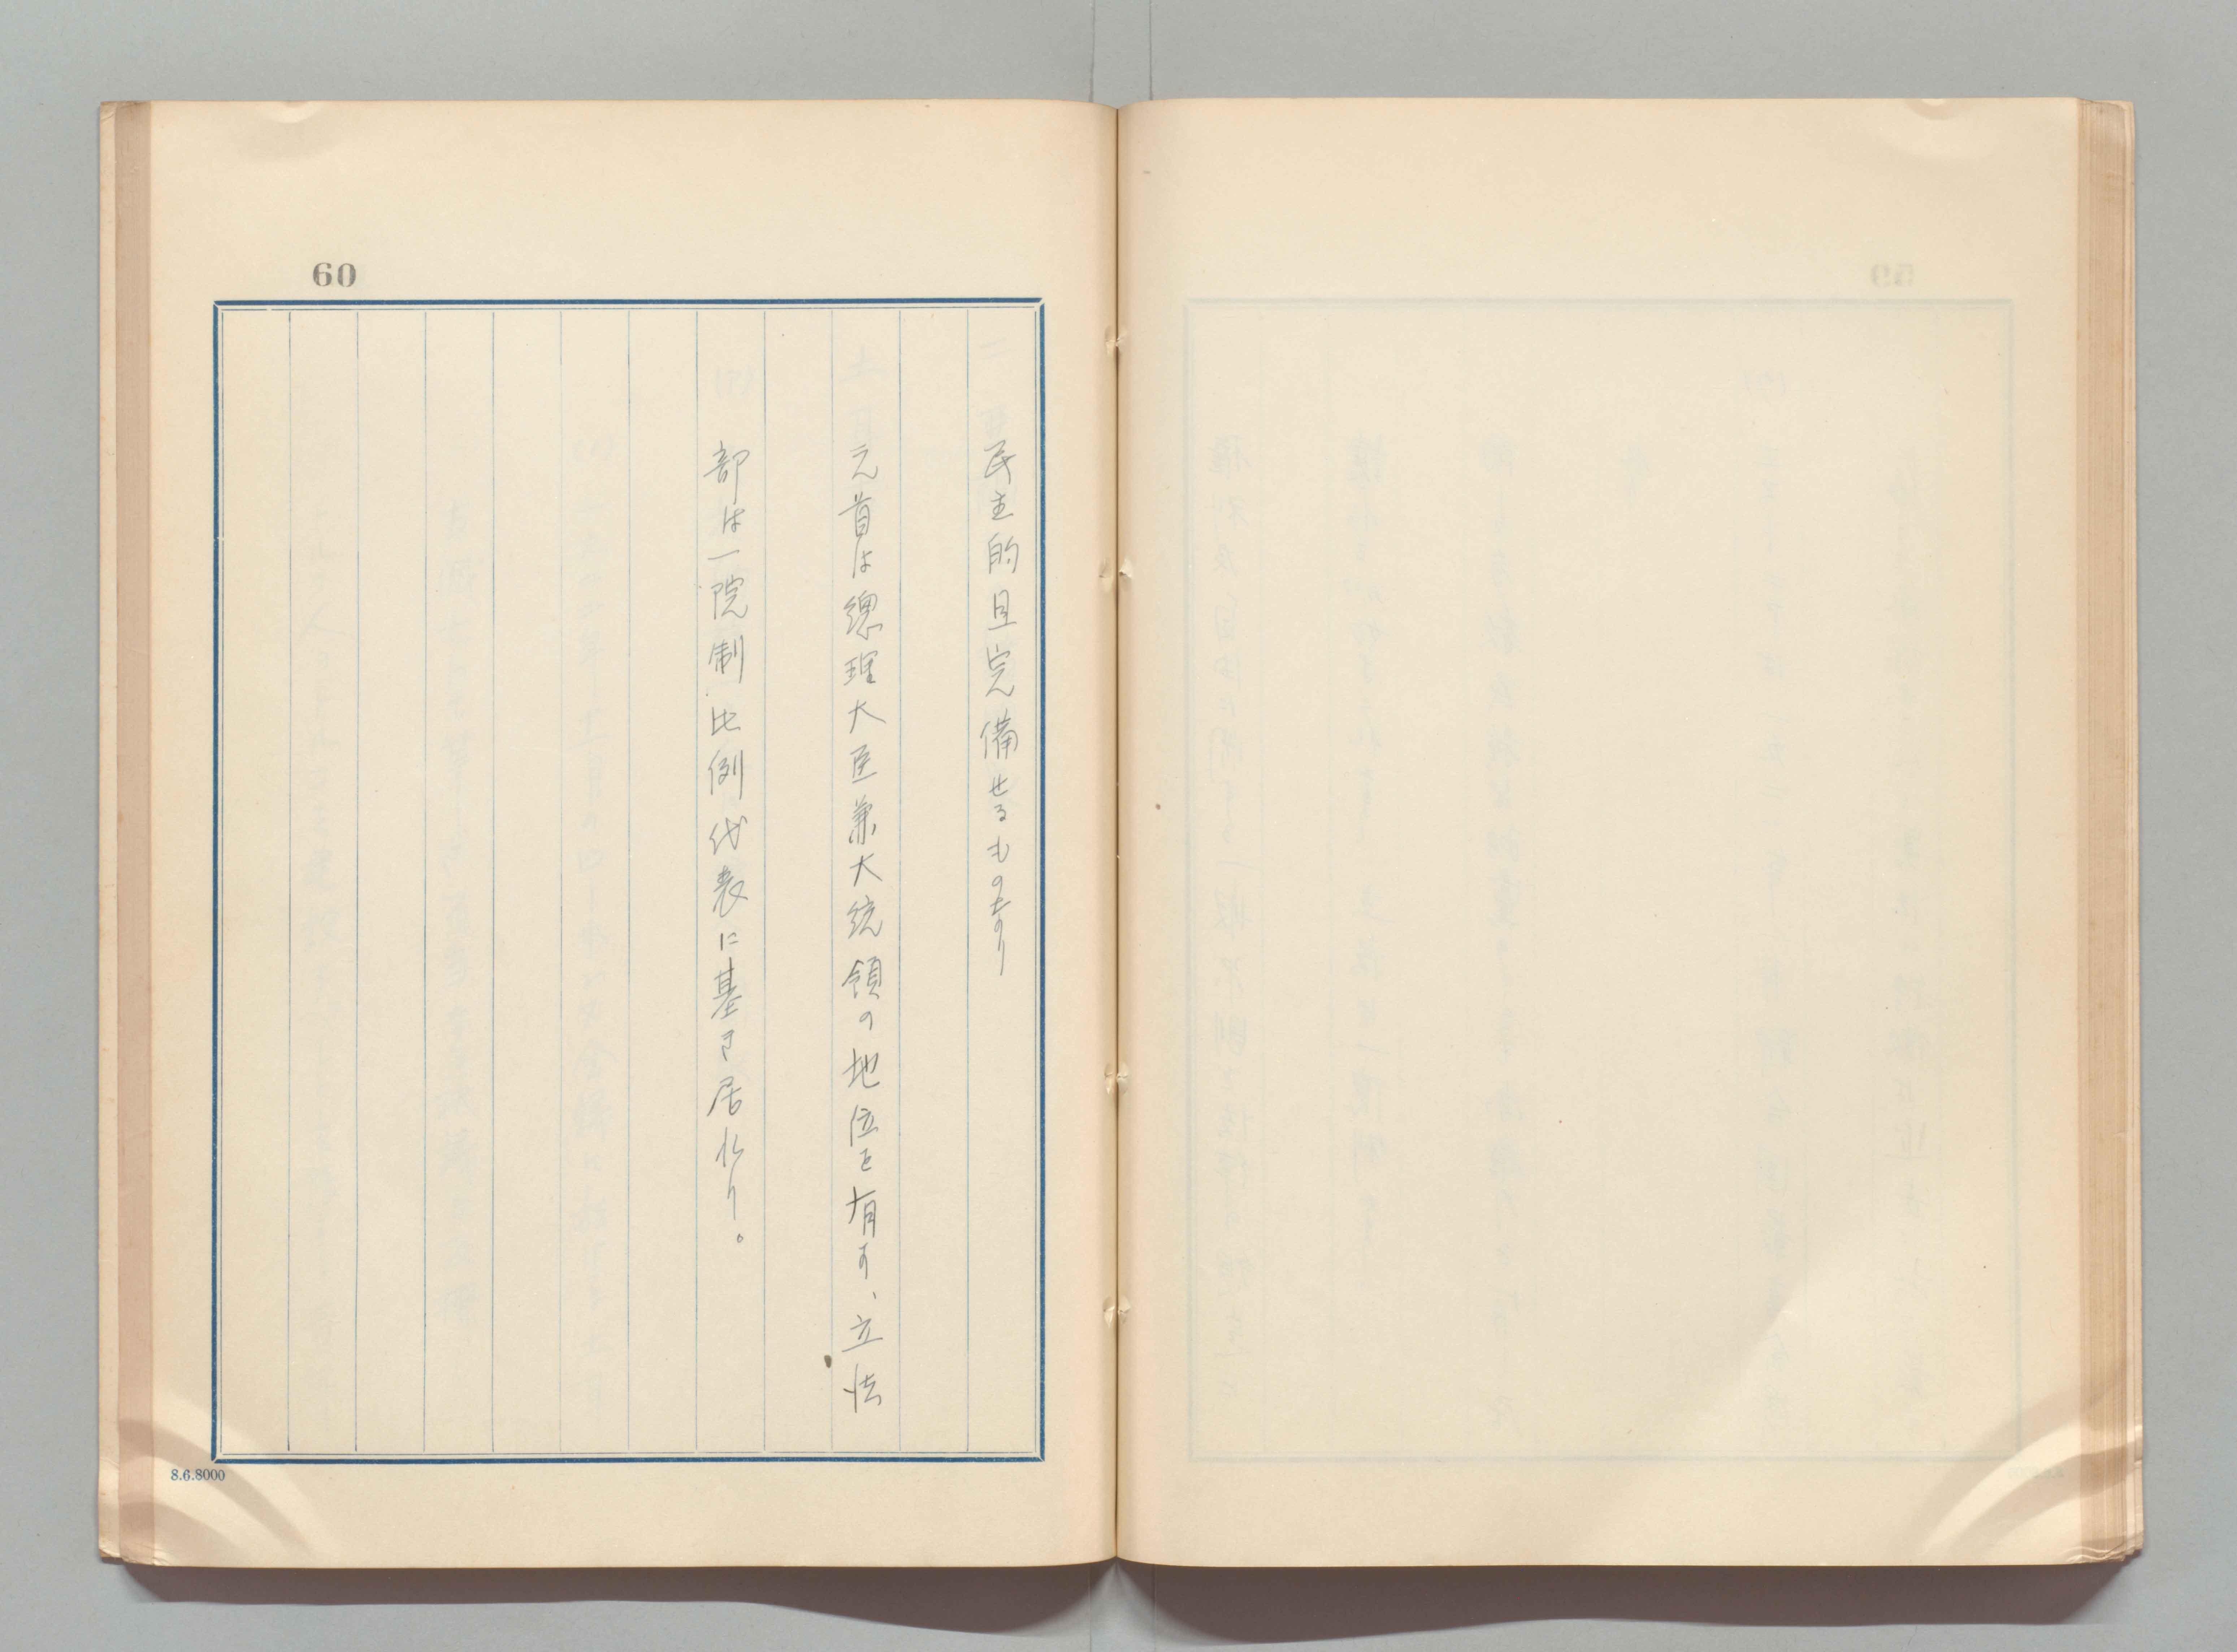 60
民主的且完備せるものなり
元首は總理大臣兼大統領の地位を有す、立法
部は一院制比例代表に基き居れり。
8.6.8000